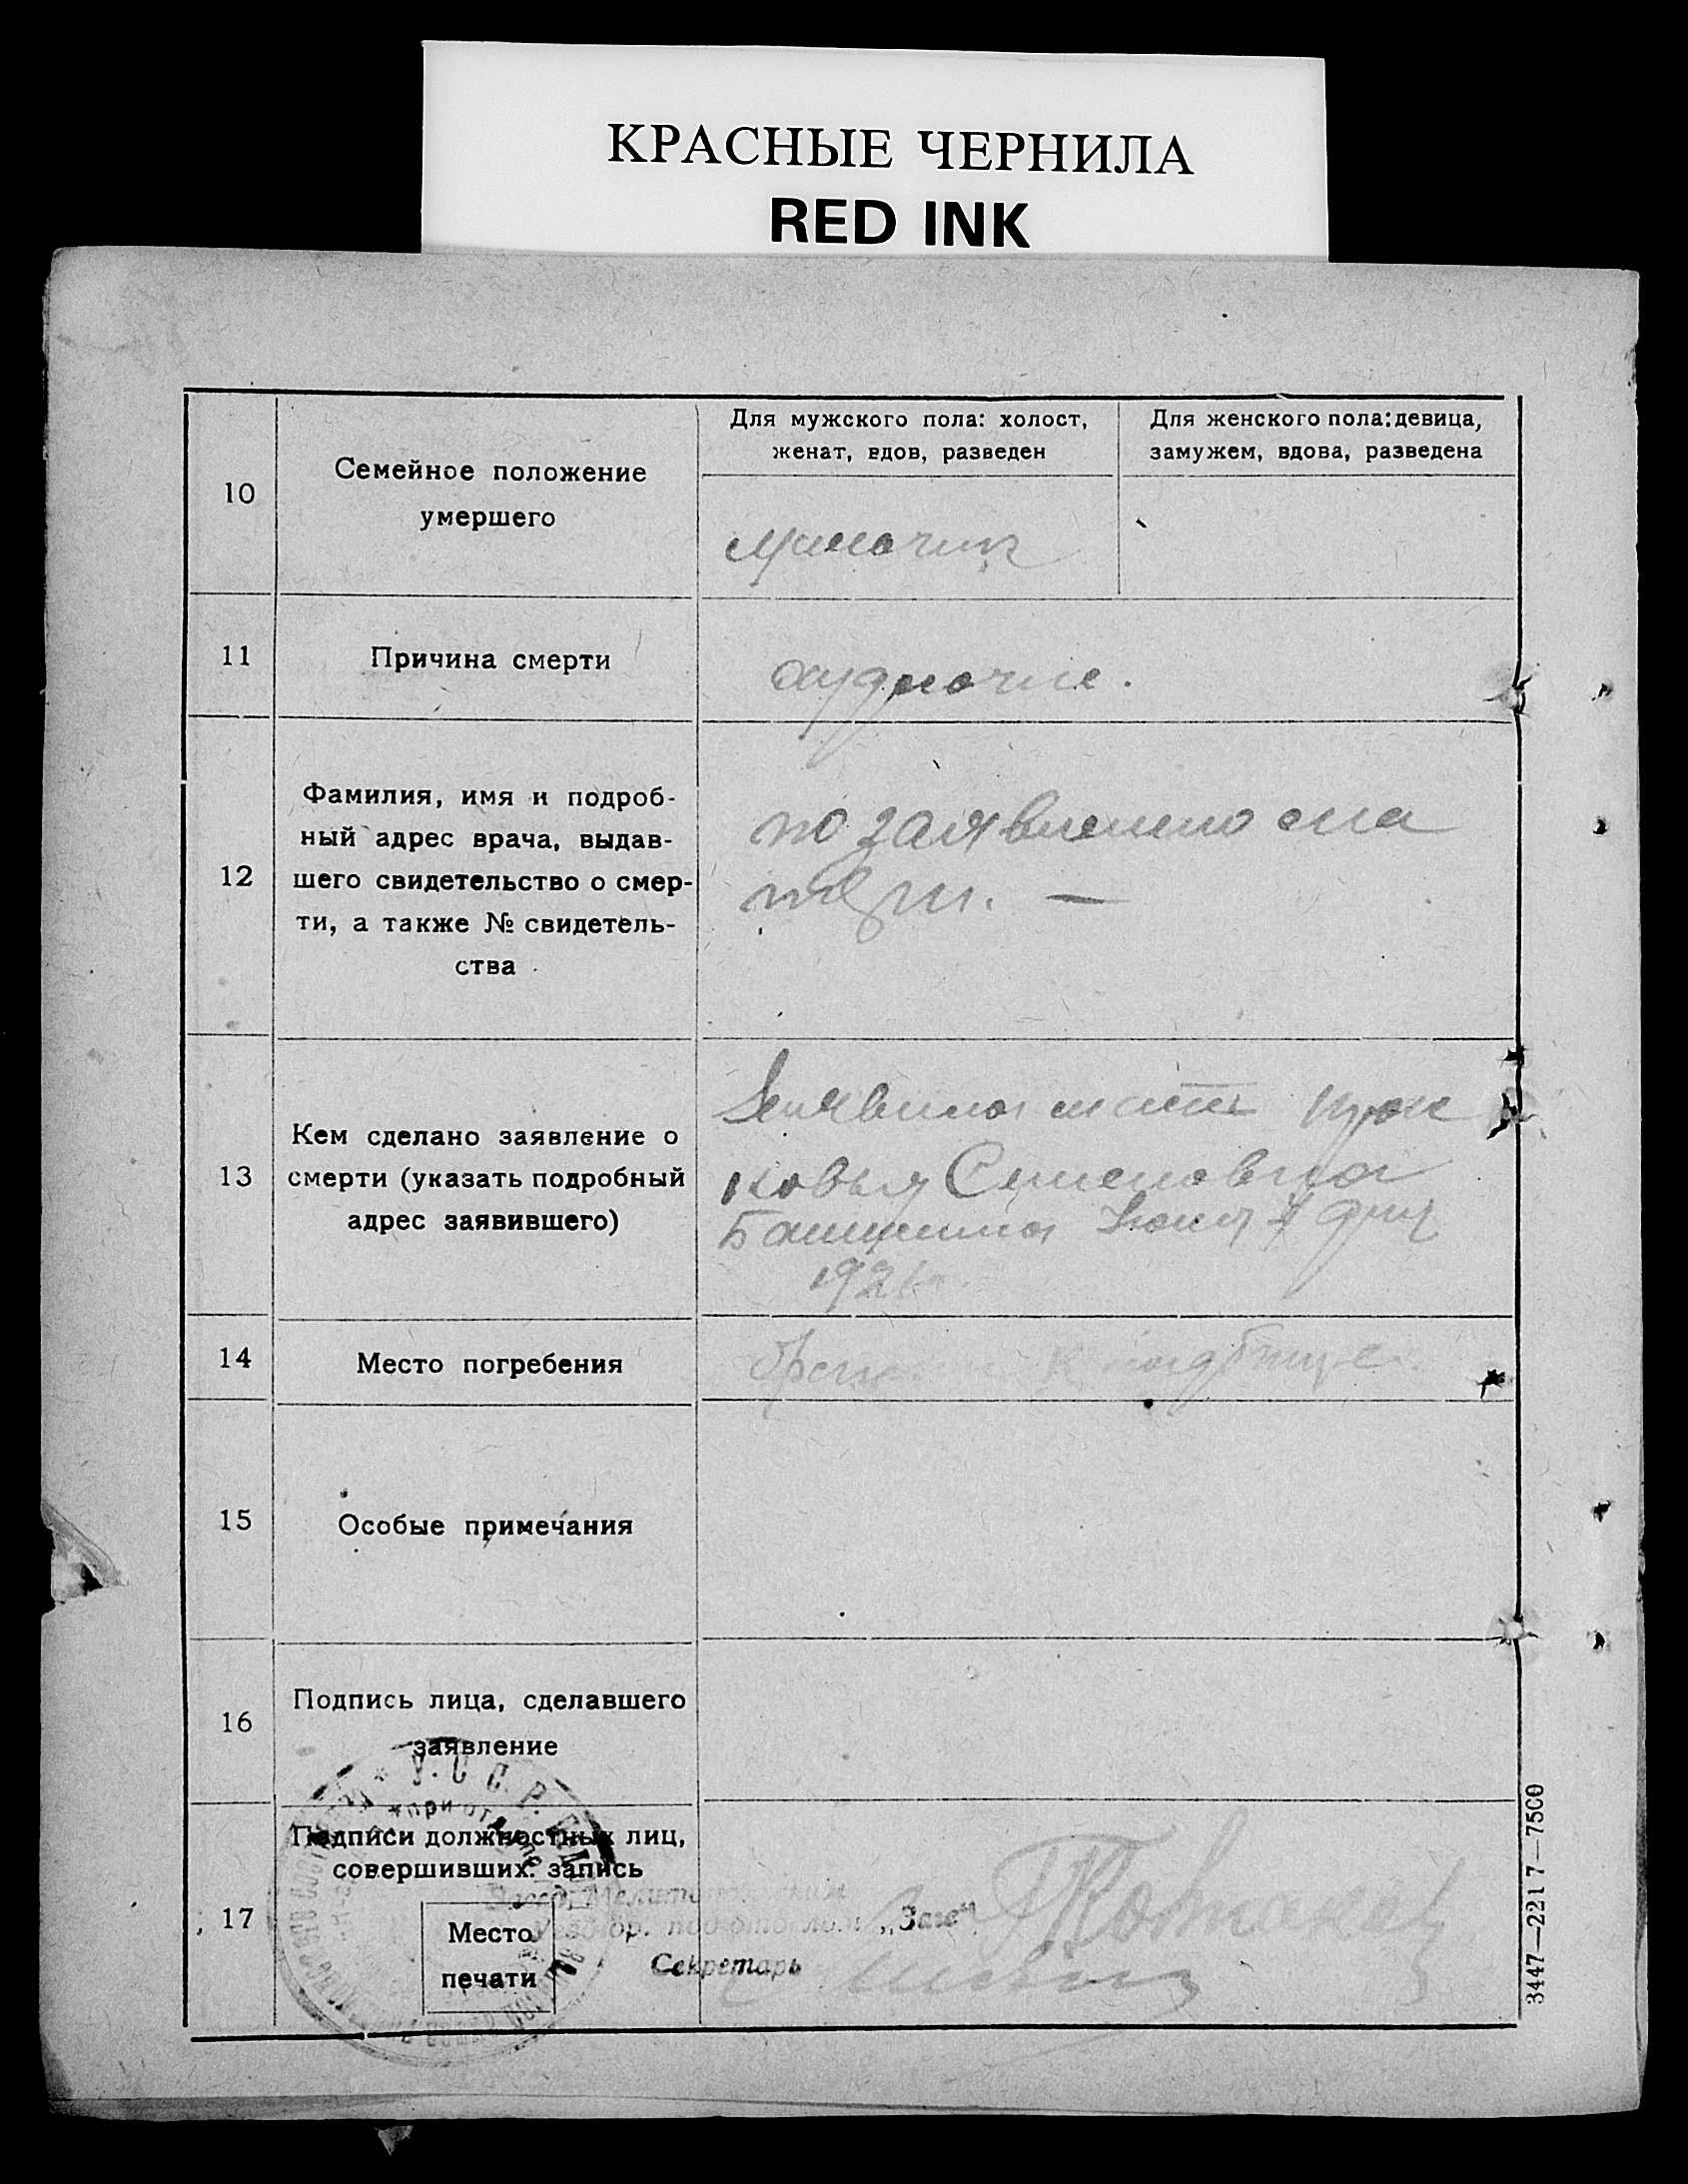 КРАСНЫЕ ЧЕРНИЛА
RED INK
10
Семейное положение
умершего
Для мужского пола: холост,
женат, вдов, разведен
Для женского пола: девица,
замужем, вдова, разведена
11
Причина смерти
худосочие.
12
Фамилия, имя и подроб-
ный адрес врача, выдав-
шего свидетельство о смер-
ти, а также № свидетель-
ства
по заявлению ма
тери. —
13
Кем сделано заявление о
смерти (указать подробный
адрес заявившего)
Заявила мать
Семеновна
дня
192
14
Место погребения
кладбище
15
Особые примечания
16
Подпись лица, сделавшего
заявление
У. С. С. Р.
при от
17
Подписи должностных лиц,
совершивших запись
Место
печати
„Загс“
Секретарь
3447—221 7—7500